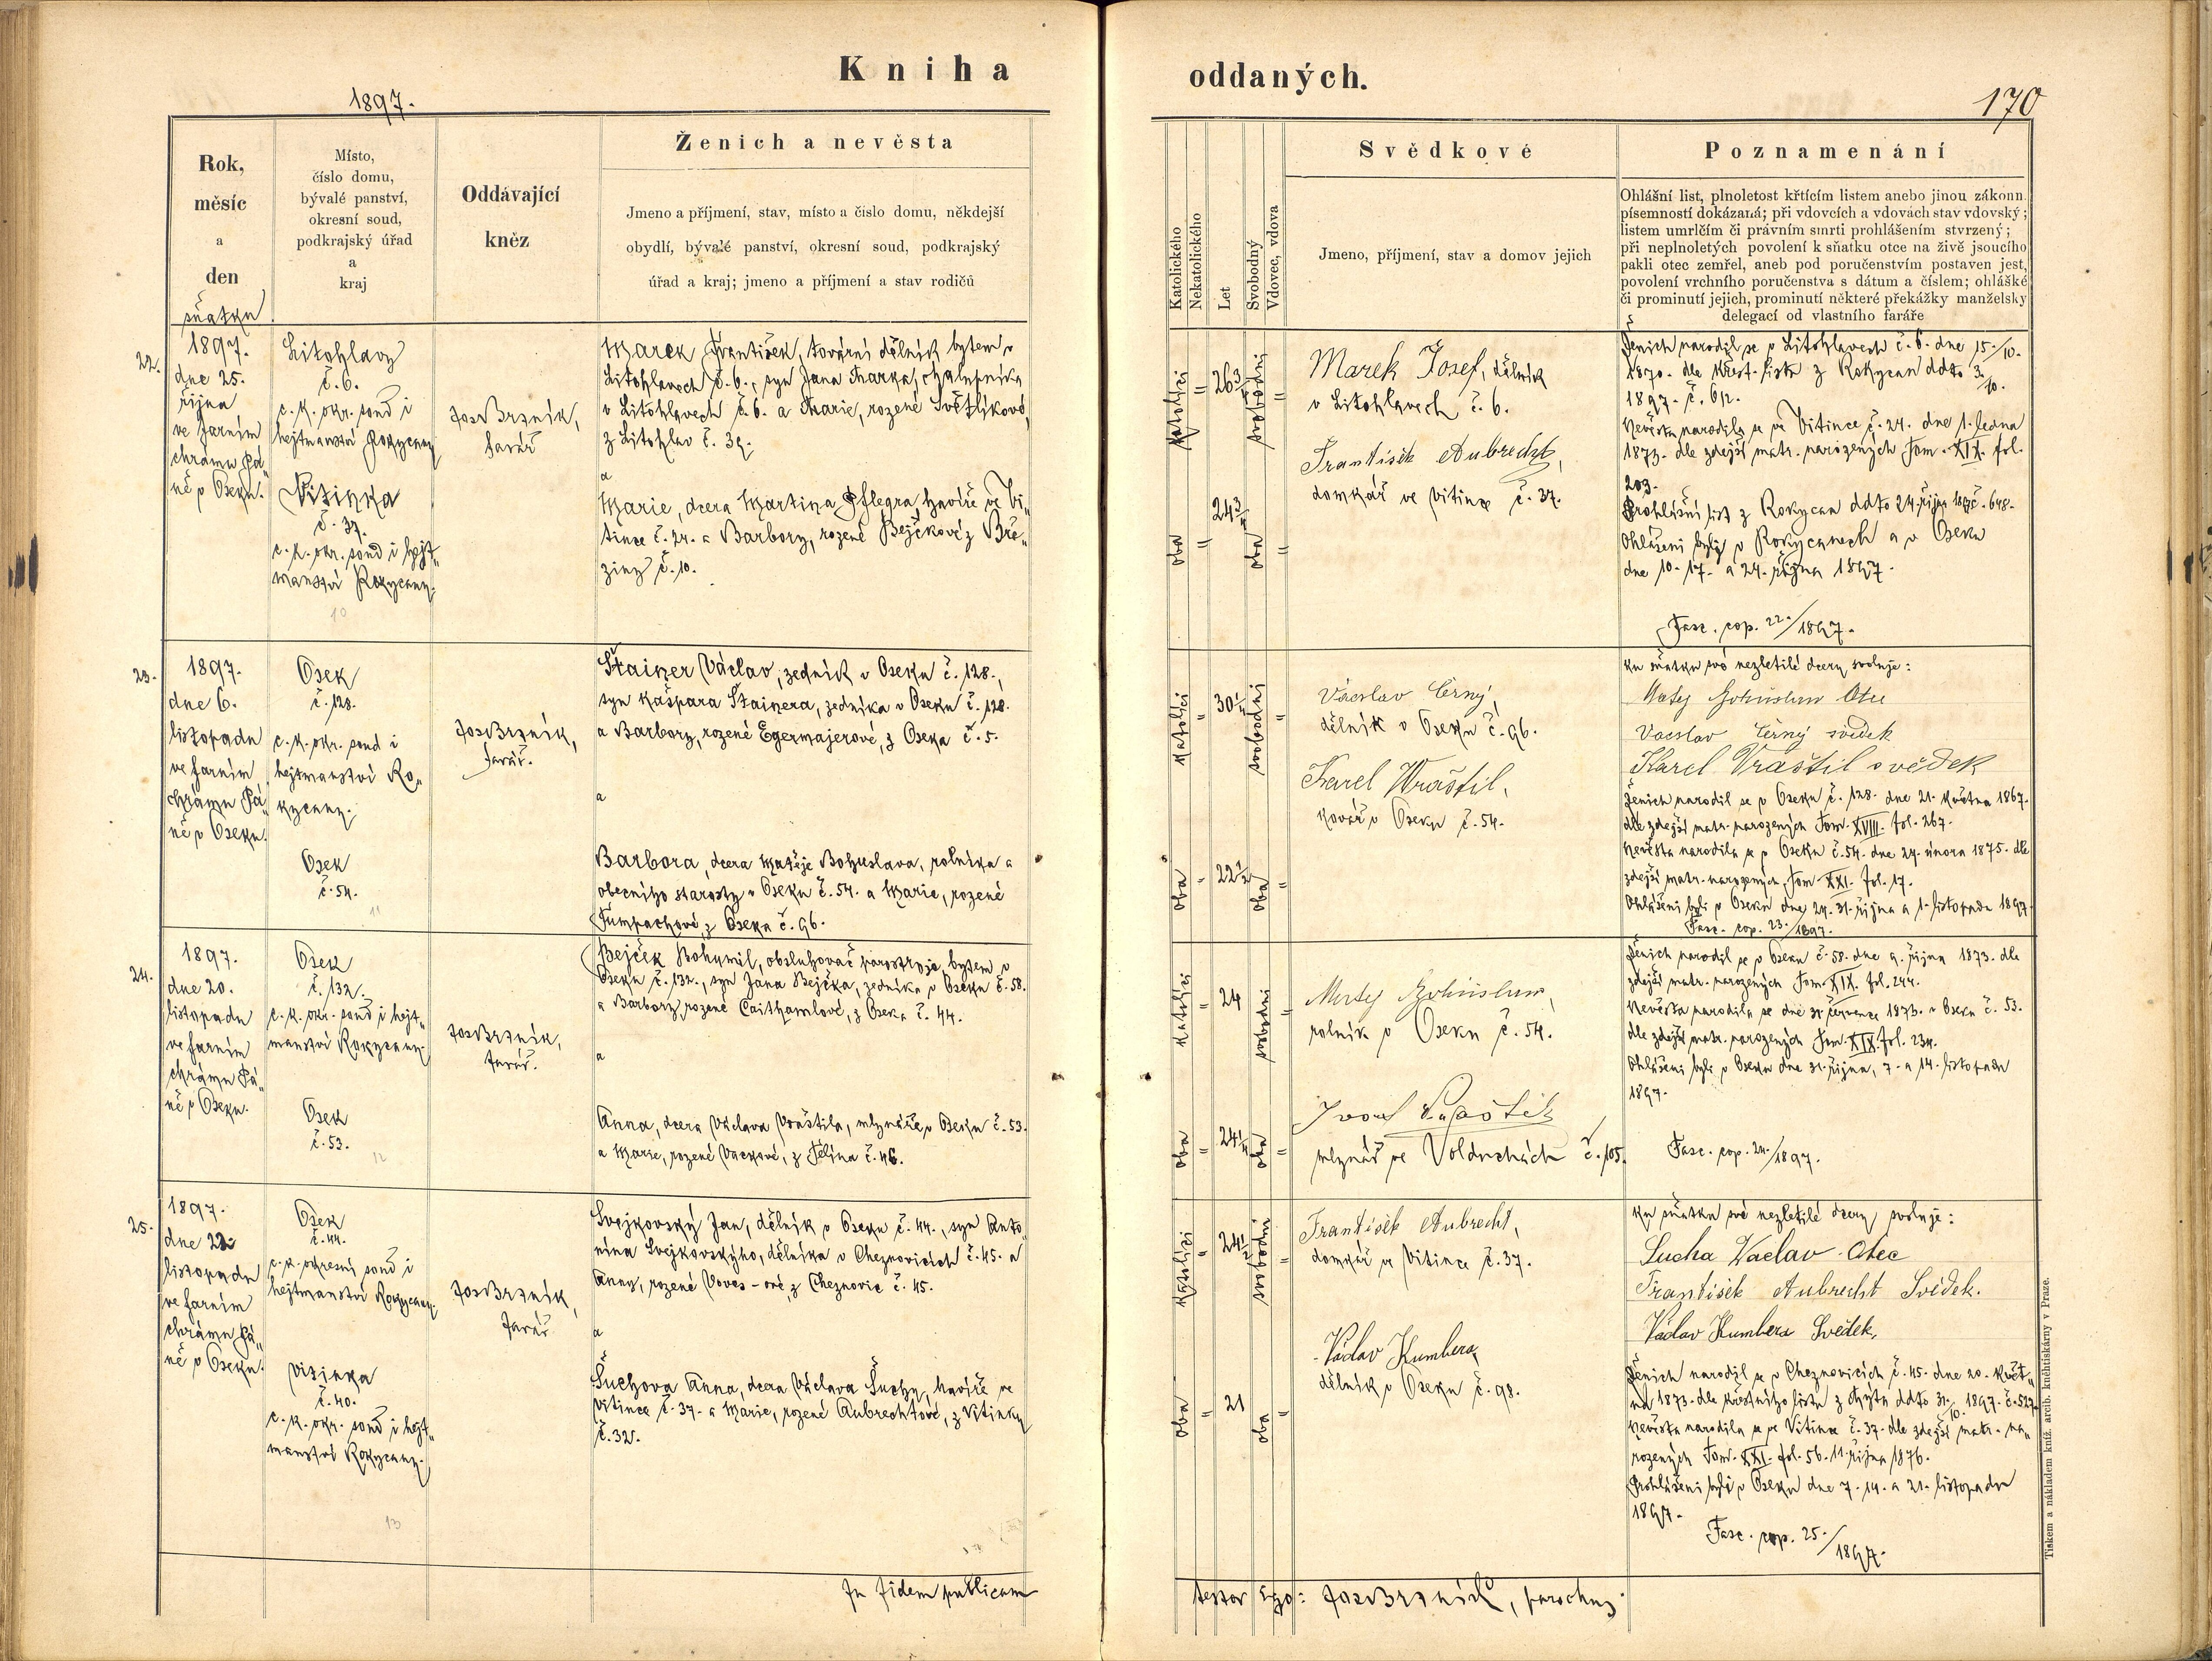 Kniha
oddaných.
1897.
170
Rok,
měsíc
a
den
sňatku
Místo,
číslo domu,
bývalé panství,
okresní soud,
podkrajský úřad
a
kraj
Oddávající
kněz
Ženich a nevěsta
Jmeno a příjmení, stav, místo a číslo domu, někdejší
obydlí, bývalé panství, okresní soud, podkrajský
úřad a kraj; jmeno a příjmení a stav rodičů
Katolického
Nekatolického
Let
Svobodný
Vdovec, vdova
Svědkové
Jmeno, příjmení, stav a domov jejich
Poznamenání
Ohlášní list, plnoletost křtícím listem anebo jinou zákonn.
písemností dokázaná; při vdovcích a vdovách stav vdovský;
listem umrlčím či právním smrti prohlášením stvrzený;
při neplnoletých povolení k sňatku otce na živě jsoucího
pakli otec zemřel, aneb pod poručenstvím postaven jest,
povolení vrchního poručenstva s dátum a číslem; ohlášké
či prominutí jejich, prominutí některé překážky manželsky
delegací od vlastního faráře
22.
1897.
dne 25.
října
ve farním
chrámu Pá„
ně v Oseku.
Litohlavy
č. 6.
c. k. okr. soud i
hejtmanství Rokycany
Vitinka
č. 37.
c. k. okr. soud i hejt„
manství Rokycany.
10
Jos Brzník,
farář
Marek František, tovární dělník bytem v
Litohlavech č. 6., syn Jana Marka, chalupníka
v Litohlavech č. 6. a Marie, rozené Světlíkové,
z Litohlav č. 39.
a
Marie, dcera Martina Pflegra, havíře ve Vi„
tince č. 24. a Barbory, rozené Bejčkové z Bře„
ziny č. 10.
oba katolíci
26 3/4
24 3/4
oba svobodni
Marek Josef, dělník
v Litohlavech č. 6.
František Aubrecht,
domkář ve Vitince č. 37.
Ženich narodil se v Litohlavech č. 6. dne 15./10.
1870. dle křest. listu z Rokycan ddto 3./10.
1897. č. 612.
Nevěsta narodila se ve Vitince č. 24. dne 1. ledna
1873. dle zdejší matr. narozených Tom. XIX. fol.
203.
Prohlášní list z Rokycan ddto 24. října 1897 č. 648.
Ohlášeni byli v Rokycanech a v Oseku
dne 10. 17. a 24. října 1897.
Fasc. cop. 22./1897.
23.
1897.
dne 6.
listopadu
ve farním
chrámu Pá„
ně v Oseku.
Osek
č. 128.
c. k. okr. soud i
hejtmanství Ro„
kycany.
Osek
č. 54.
11
Jos Brzník,
farář.
Štainer Václav, zedník v Oseku č. 128.,
syn Kašpara Štainera, zedníka v Oseku č. 128.
a Barbory, rozené Egermajerové, z Oseka č. 5.
a
Barbora, dcera Matěje Bohuslava, rolníka a
obecního starosty v Oseku č. 54. a Marie, rozené
Tumpachové, z Oseka č. 96.
oba katolíci
30 1/2
22 1/2
oba svobodni
Václav Černý,
dělník v Oseku č. 96.
Karel Wraštil,
kovář v Oseku č. 54.
ku sňatku své nezletilé dcery svoluje:
Matěj Bohuslav Otec
Vacslav Černý svědek
Karel Vraštil svědek
Ženich narodil se v Oseku č. 128. dne 21. května 1867.
dle zdejší matr. narozených Tom. XVIII. fol. 267.
Nevěsta narodila se v Oseku č. 54. dne 24. února 1875. dle
zdejší matr. narozených, Tom XXI. fol. 17.
Ohlášeni byli v Oseku dne 24. 31. října a 1. listopadu 1897.
Fasc. cop. 23./1897.
24.
1897.
dne 20.
listopadu
ve farním
chrámu Pá„
ně v Oseku.
Osek
č. 132.
c. k. okr. soud i hejt„
manství Rokycany.
Osek
č. 53.
12
Jos Brzník,
farář.
Bejček Bohumil, obsluhovač parostroje, bytem v
Oseku č. 132., syn Jana Bejčka, zedníka v Oseku č. 58.
a Barbory, rozené Caithamlové, z Oseka č. 44.
a
Anna, dcera Václava Vraštila, mlynáře v Oseku č. 53.
a Marie, rozené Vackové, z Těлína č. 46.
oba katolíci
24
24 1/4
oba svobodni
Matěj Bohuslav,
rolník v Oseku č. 54.
mlynář ve Volduchách č. 105.
Ženich narodil se v Oseku č. 58. dne 9. října 1873. dle
zdejší matr. narozených Tom. XIX. fol. 244.
Nevěsta narodila se dne 31. července 1873. v Oseku č. 53.
dle zdejší matr. narozených Tom. XIX. fol. 234.
Ohlášeni byli v Oseku dne 31. října, 7. a 14. listopadu
1897.
Fasc. cop. 24./1897.
25.
1897.
dne 22.
listopadu
ve farním
chrámu Pá„
ně v Oseku.
Osek
č. 44.
c. k. okresní soud i
hejtmanství Rokycany.
Vitinka
č. 40.
c. k. okr. soud i hejt„
manství Rokycany.
13
Jos Brzník,
farář
Svejkovský Jan, dělník v Oseku č. 44., syn Anto„
nína Svejkovskýho, dělníka v Cheznovicích č. 45. a
Anny, rozené Voves-ové, z Cheznovic č. 45.
a
Šuchova Anna, dcera Václava Šuchy, havíře ve
Vitince č. 37. a Marie, rozené Aubrechtové, z Vitinky
č. 32.
oba katolíci
24 1/2
21
oba svobodni
František Aubrecht,
domkář ve Vitince č. 37.
Václav Kumbera,
dělník v Oseku č. 98.
ku sňatku své nezletilé dcery svoluje:
Sucha Vaclav Otec
František Aubrecht Svědek.
Václav Kumbera Svědek.
Ženich narodil se v Cheznovicích č. 45. dne 20. květ„
na 1873. dle křestního listu z Mýta ddto 31./10. 1897. č. 527.
Nevěsta narodila se ve Vitince č. 37. dle zdejší matr. na„
rozených Tom. XXI. fol. 56. 11. října 1876.
Prohlášeni byli v Oseku dne 7. 14. a 21. listopadu
1897.
Fasc. cop. 25./1897.
In fidem publicam
testor Ego: Jos Brzník, parochus.
Tiskem a nákladem kníž. arcib. knihtiskárny v Praze.